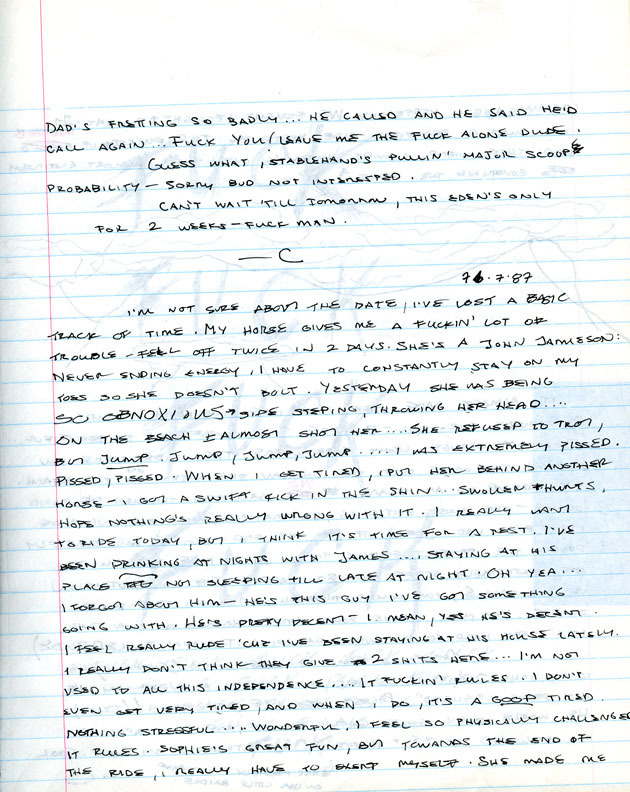 DAD'S FRETTING SO BADLY... HE CALLED AND HE SAID HE'D
CALL AGAIN... FUCK YOU/LEAVE ME THE FUCK ALONE DUDE.
GUESS WHAT, STABLEHAND'S PULLIN' MAJOR SCOOP
PROBABILITY — SORRY BUD NOT INTERESTED.
CAN'T WAIT 'TILL TOMORROW, THIS EDEN'S ONLY
FOR 2 WEEKS — FUCK MAN.
— C
7.87
I'M NOT SURE ABOUT THE DATE, I'VE LOST A BASIC
TRACK OF TIME. MY HORSE GIVES ME A FUCKIN' LOT OF
TROUBLE — FELL OFF TWICE IN 2 DAYS. SHE'S A JOHN JAMIESON:
NEVER ENDING ENERGY, I HAVE TO CONSTANTLY STAY ON MY
TOES SO SHE DOESN'T BOLT. YESTERDAY SHE WAS BEING
SO OBNOXIOUS → SIDE STEPING, THROWING HER HEAD....
ON THE BEACH I ALMOST SHOT HER... SHE REFUSED TO TROT,
BUT JUMP. JUMP, JUMP, JUMP.... I WAS EXTREMELY PISSED.
PISSED, PISSED. WHEN I GET TIRED, I PUT HER BEHIND ANOTHER
HORSE — I GOT A SWIFT KICK IN THE SHIN... SWOLLEN & HURTS.
HOPE NOTHING'S REALLY WRONG WITH IT. I REALLY WANT
TO RIDE TODAY, BUT I THINK IT'S TIME FOR A REST. I'VE
BEEN DRINKING AT NIGHTS WITH JAMES.... STAYING AT HIS
PLACE NOT SLEEPING TILL LATE AT NIGHT. OH YEA...
I FORGOT ABOUT HIM — HE'S THIS GUY I'VE GOT SOMETHING
GOING WITH. HE'S PRETTY DECENT — I MEAN, YES HE'S DECENT.
I FEEL REALLY RUDE 'CUZ I'VE BEEN STAYING AT HIS HOUSE LATELY.
I REALLY DON'T THINK THEY GIVE 2 SHITS HERE... I'M NOT
USED TO ALL THIS INDEPENDENCE.... IT FUCKIN' RULES. I DON'T
EVEN GET VERY TIRED, AND WHEN I DO, IT'S A GOOD TIRED.
NOTHING STRESSFUL.... WONDERFUL. I FEEL SO PHYSICALLY CHALLENGED
IT RULES. SOPHIE'S GREAT FUN, BUT TOWARDS THE END OF
THE RIDE, I REALLY HAVE TO EXERT MYSELF. SHE MADE ME